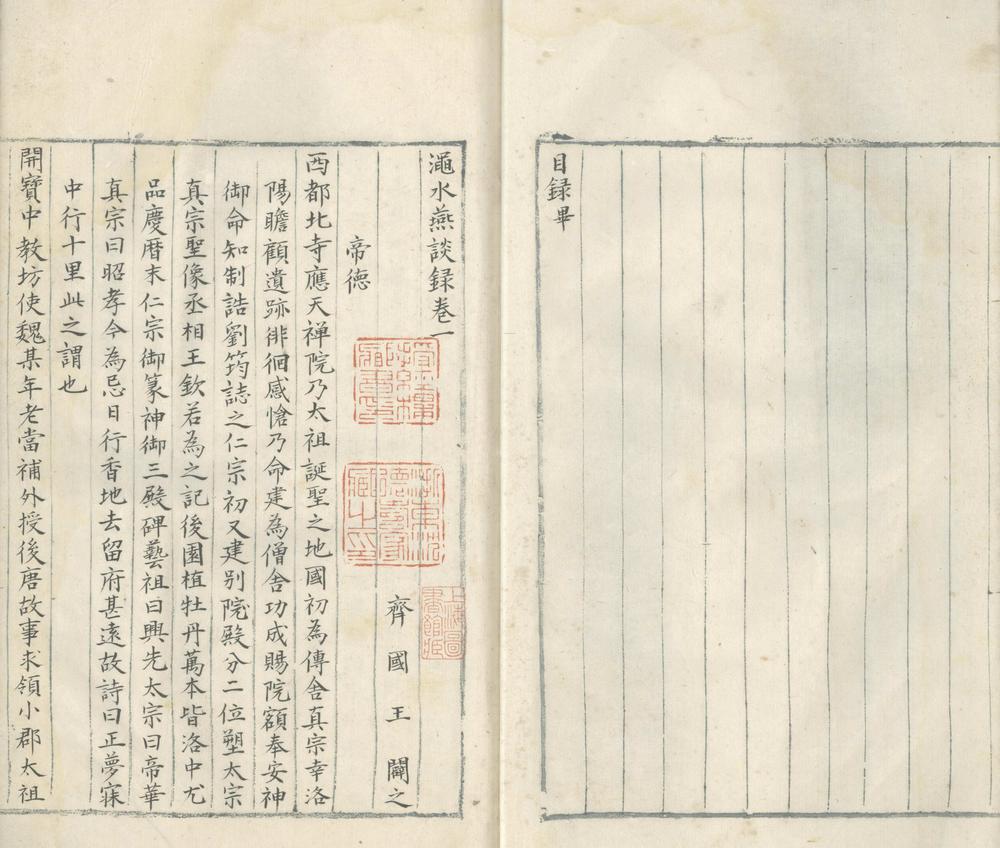 目録畢
澠水燕談録卷一
齊國王闢之
帝德
西都北寺應天禅院乃太祖誕聖之地國初為傳舍真宗幸洛
陽瞻顧遺跡徘徊感愴乃命建為僧舍功成賜院額奉安神
御命知制誥劉筠誌之仁宗初又建别院殿分二位塑太宗
真宗聖像丞相王欽若為之記後園植牡丹萬本皆洛中尤
品慶暦末仁宗御篆神御三殿碑藝祖曰興先太宗曰帝華
真宗曰昭孝今為忌日行香地去留府甚遠故詩曰正夢寐
中行十里此之謂也
開寶中教坊使魏某年老當補外授後唐故事求領小郡太祖
上海圖書館藏